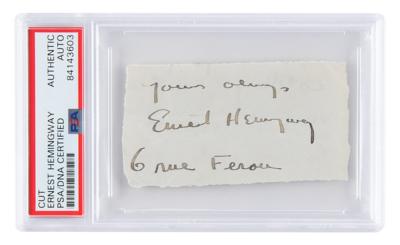 CUT
ERNEST HEMINGWAY
PSA/DNA CERTIFIED
AUTHENTIC
AUTO
84143603
PSA
yours always
Ernest Hemingway
6 rue Ferou